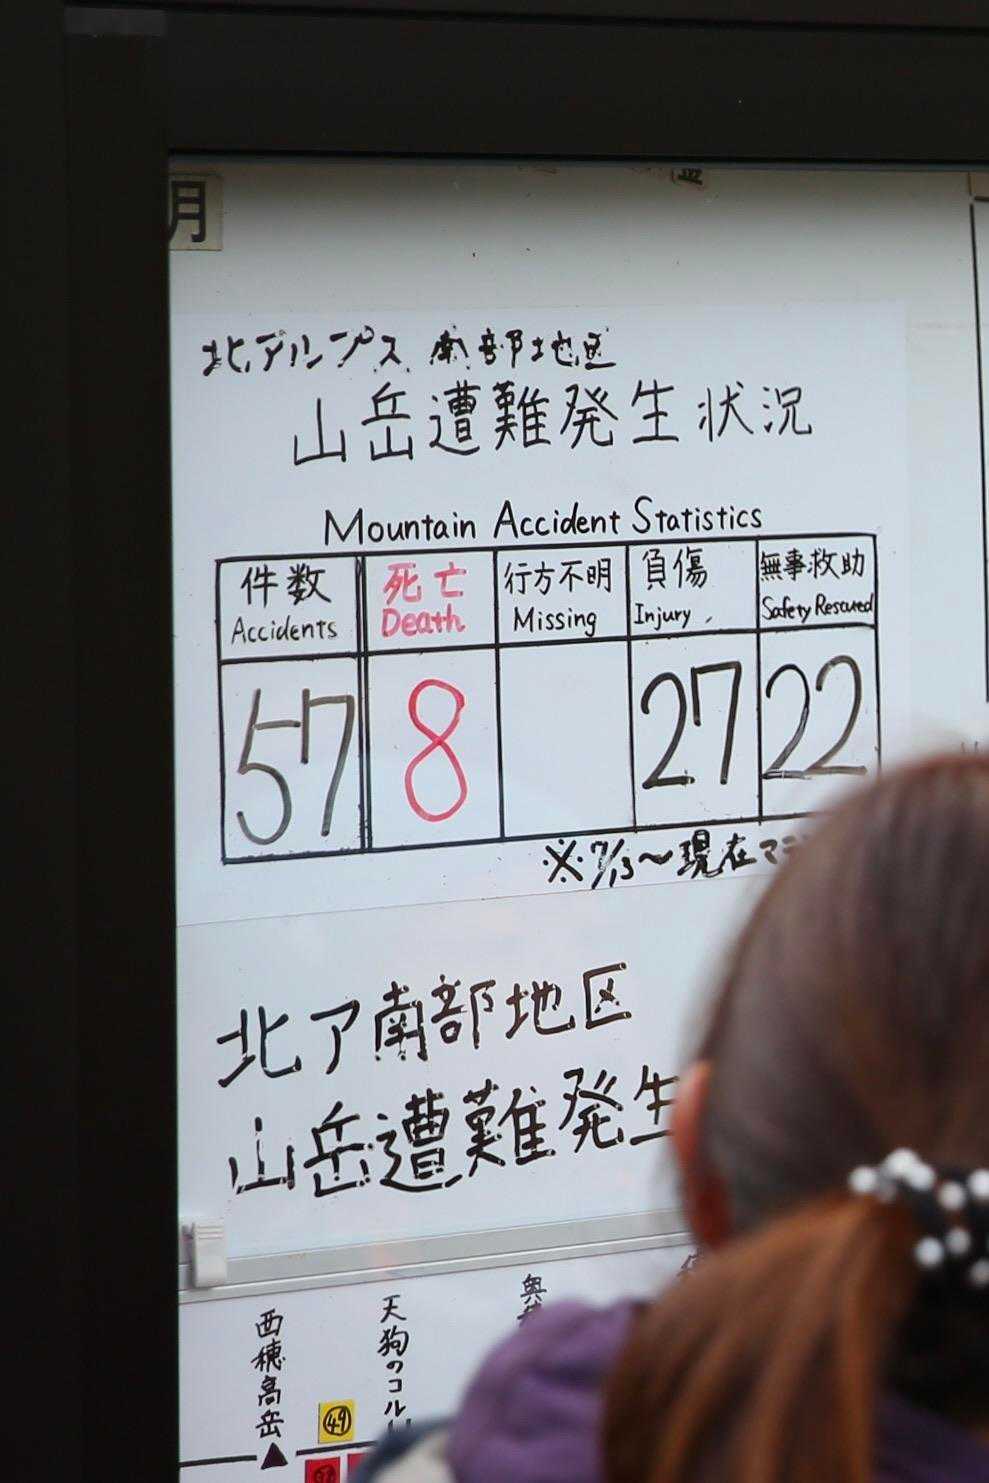 月
北アルプス南部地区
山岳遭難発生状況
Mountain Accident Statistics
件数 死亡 行方不明 負傷 無事救助
Accidents Death Missing Injury Safety Rescued
57 8 27 22
※7/13〜現在マデ
北ア南部地区
山岳遭難発生
西穂高岳
天狗のコル
奥
49